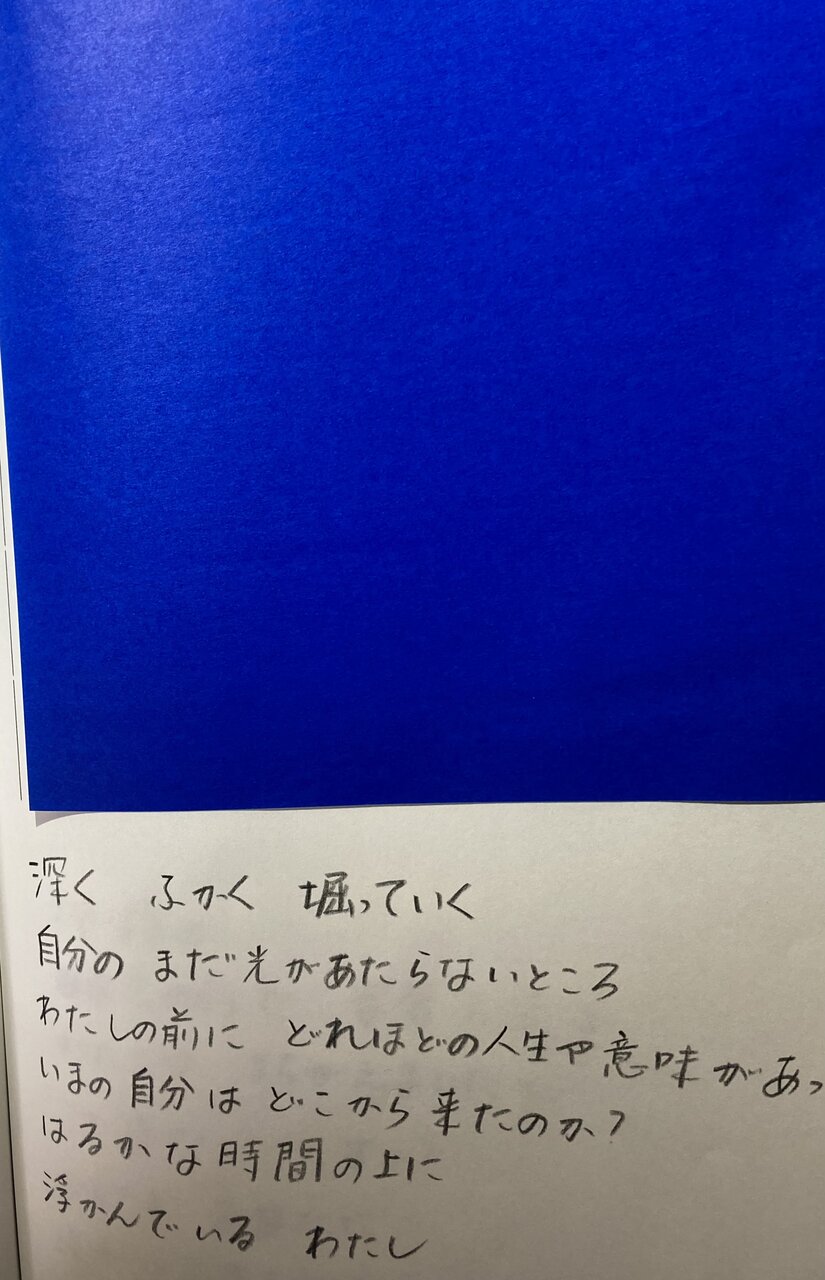 深く ふかく 堀っていく
自分の まだ光があたらないところ
わたしの前に どれほどの人生や意味があっ
いまの自分は どこから来たのか?
はるかな時間の上に
浮かんでいる わたし